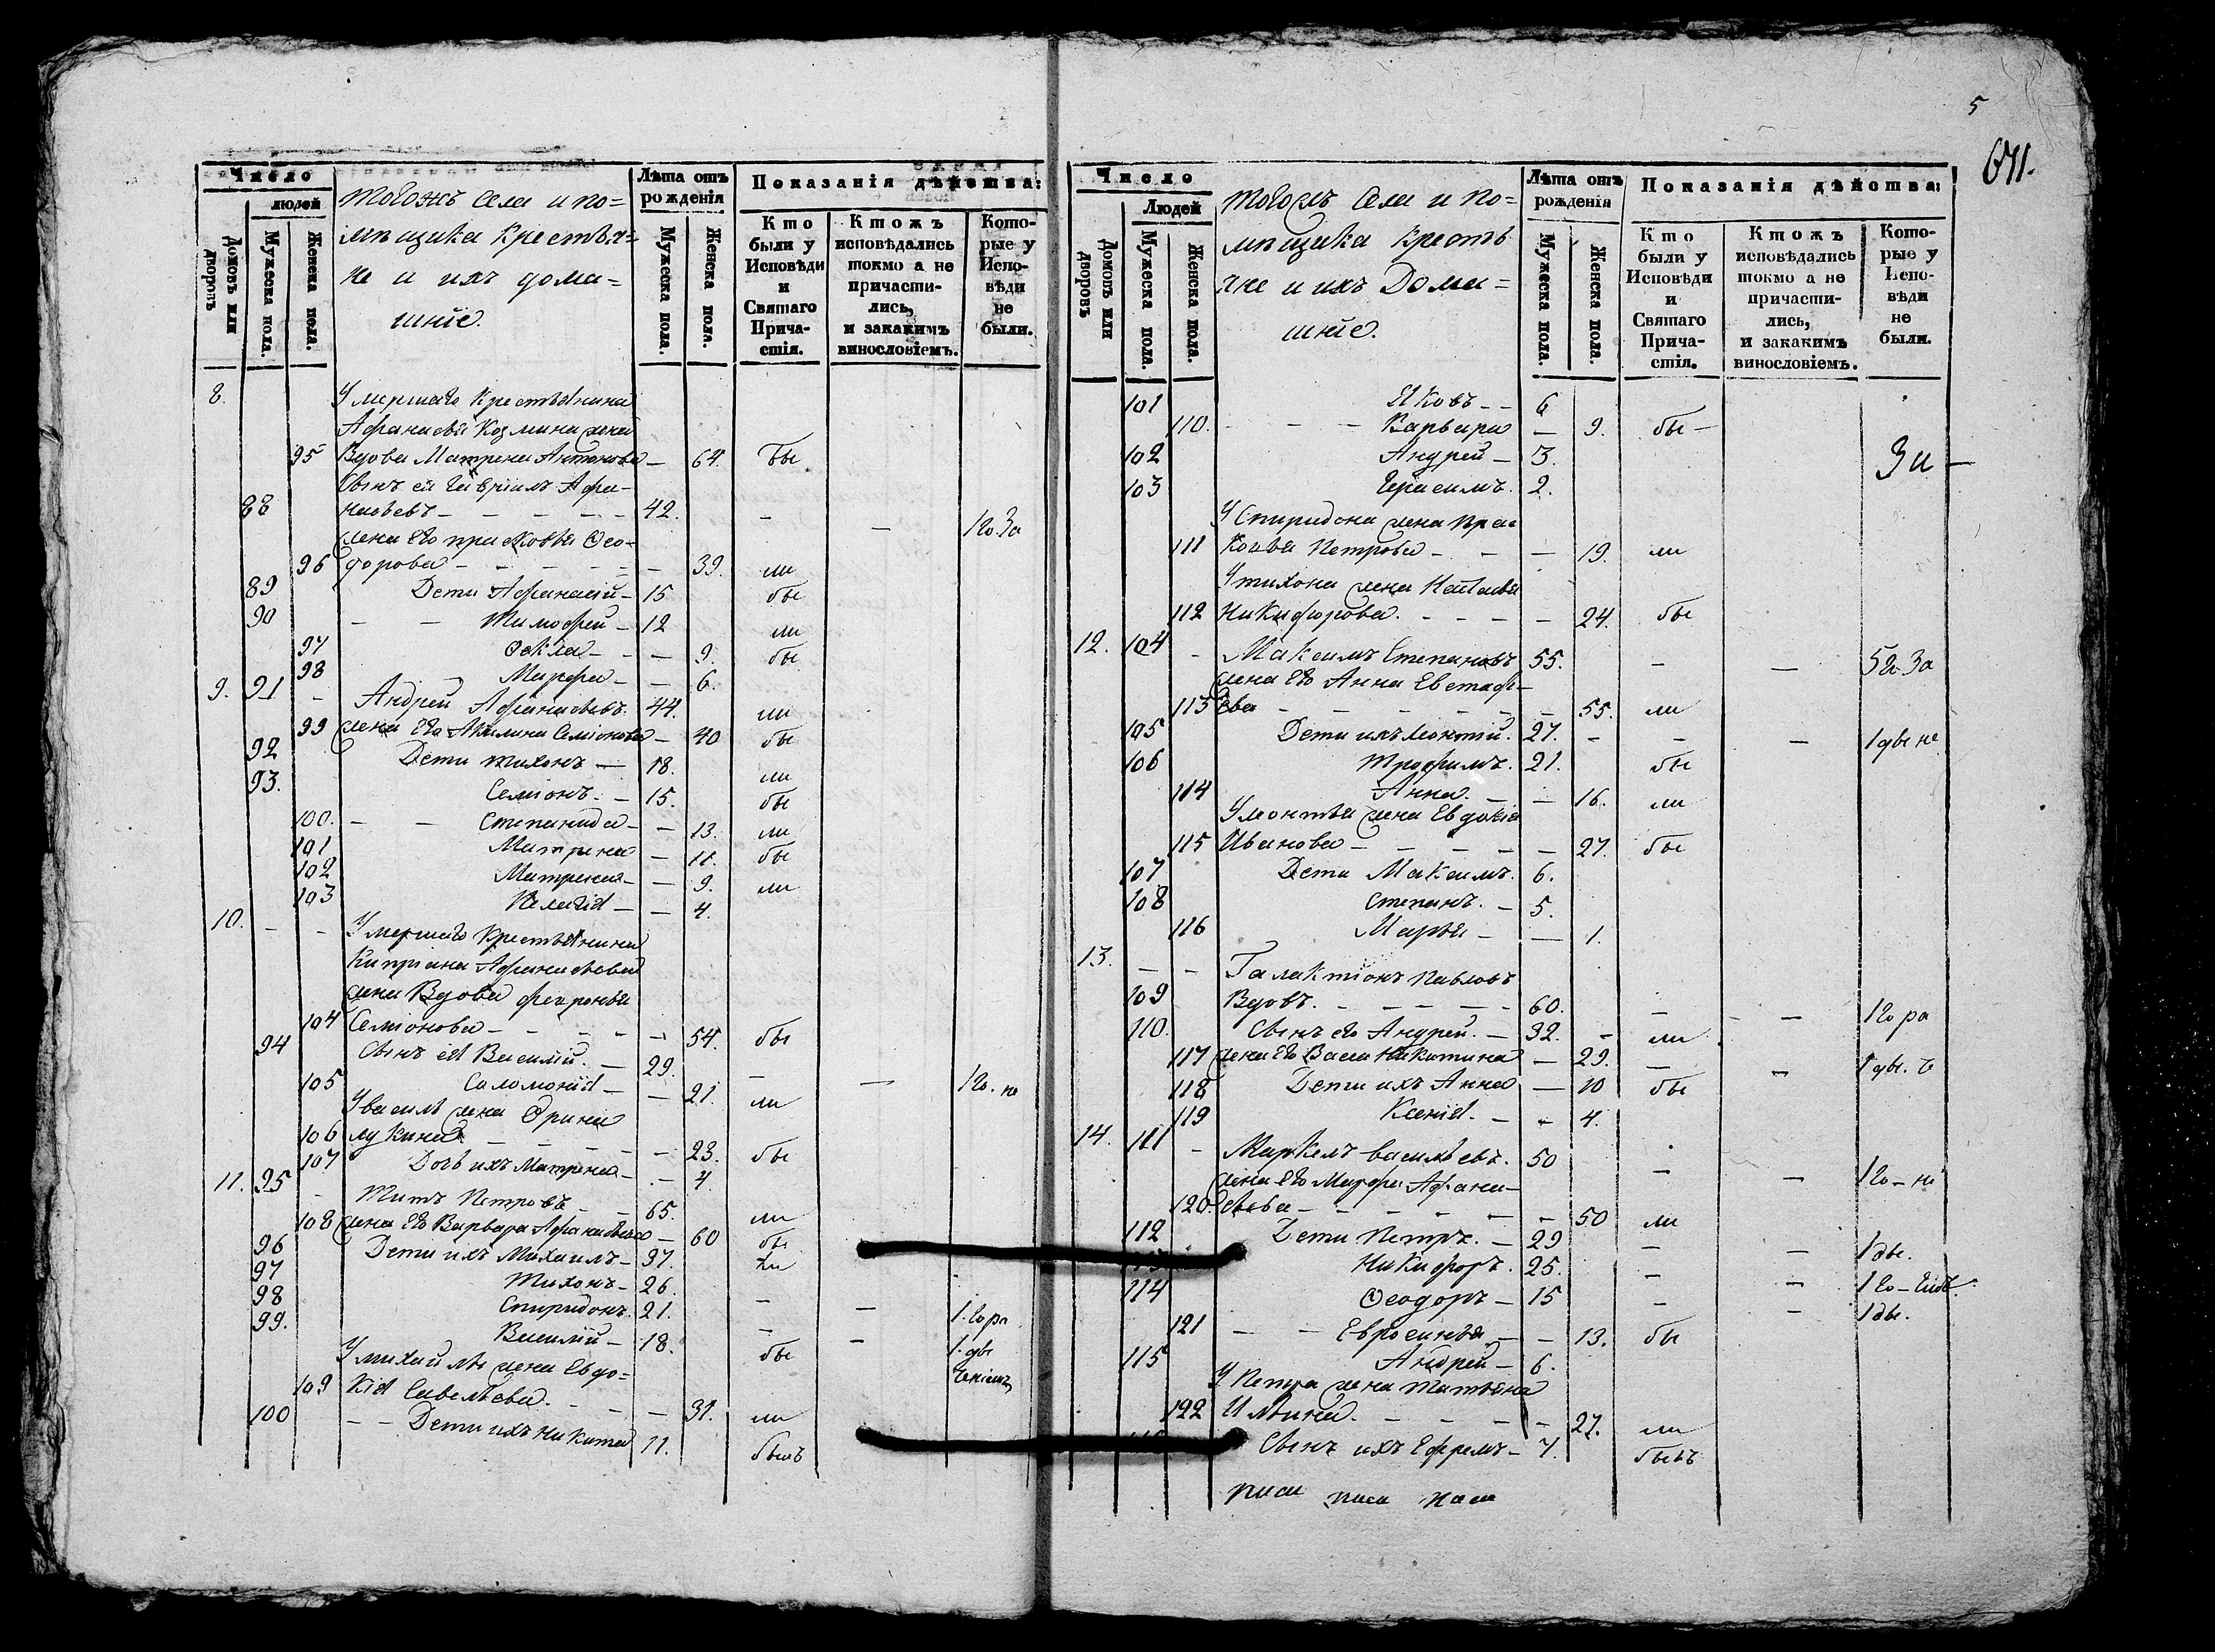 5
671.
Число
людей
Домовъ или дворовъ
Мужеска пола.
Женска пола.
тогожъ села и по=
мѣщика крестья=
не и ихъ дома=
шніе.
Лѣта отъ рожденія
Мужеска пола.
Женска пола.
Показанія дѣйства:
Кто были у Исповѣди и Святаго Причастія.
Ктожъ исповѣдались токмо а не причастились, и закакимъ винословіемъ.
Которые у Исповѣди не были.
8. Умершаго крестьянина
Афанасья Козмина жена
95 Вдова Матрена Антонова — 64. бы
Сынъ ей Гавріилъ Афа-
88 насьевъ - - - - - 42. - - 1го За
жена его прасковья Ѳео-
96 дорова - - - - - 39. ли
89 Дети Афанасій - 15 бы
90 - - Тимофей - 12 ли
97 Ѳекла - - - 9. бы
98 Марфа - - 6.
9. 91 - Андрей Афанасьевъ. 44. ли
99 жена Его Акилина Семіонова - 40 бы
92 Дети тихонъ — 18. ли
93. Семіонъ. - 15. бы
100. - - Степанида - - 13. ли
101 Матрена - 11. бы
102 Матрена - - 9. ли
103 Пелагіа - - 4.
10. - - Умершаго крестьянина
Кипріана Афанасьева
жена Вдова февронья
104 Семіонова - - - - - 54. бы
94 Сынъ еіа Василій. - 29. - - 1го. по
105 Саломоніа - - 21 ли
Увасилья жена Ѳрина
106 лукина - - - - - 23. бы
107 Дочь ихъ Матрена - - 4.
11. 95 - Титъ Петровъ - - 65. ли
108 жена Его Варвара Афанасьева - 60 бы
96 Дети ихъ Михаилъ - 37. ли
97 Тихонъ - 26. -
98 Спиридонъ. 21. - - 1. го ра
99. Василій - 18. бы - 1. дв
Умихайлы жена Евдо=
109 кіа Савельева. - - - 31. ли
100 - - Дети ихъ никита 11. былъ
Число
Людей
Домовъ или дворовъ
Мужеска пола.
Женска пола.
тогожъ села и по=
мѣщика крестья
яне и ихъ Дома=
шніе.
Лѣта отъ рожденія
Мужеска пола.
Женска пола.
Показанія дѣйства:
Кто были у Исповѣди и Святаго Причастія.
Ктожъ исповѣдались токмо а не причастились, и закакимъ винословіемъ.
Которые у Исповѣди не были.
101 Яковъ - - 6
110. - - - Варвара — 9. бы —
102 Андрей - 3. За —
103 Герасимъ. 2.
У Спиридона жена прас
111 ковья Петрова - - — 19. ли
Утихона жена Наталья
112 Никифорова. - - - - 24. бы
12. 104 - Максимъ Степановъ 55. - - 5го За
жена Его Анна Евстафи-
113 Ева - - - - - - 55. ли
105 Дети ихъ монтій. 27. - - - 1 дв не
106 трофимъ. 21. бы
114 Анна. - - 16. ли
Умонтья жена Евдокіа
115 Иванова - - - - - 27. бы
107 Дети Максимъ. 6.
108 Степанъ. - 5.
116 Марья - — 1.
13. - - Галактіонъ павловъ
109 Вдовъ. - - - - - 60. - - - 1го ра
110. Сынъ его Андрей. - 32. - ли
117 жена Его Васса Никитина - 29. - - 1 дв.
118 Дети ихъ Анна — 10 бы
119 Ксеніа. - - 4.
14. 111 - Маркелъ васильевъ. 50 - - 1го - не
жена Его Марфа Афана-
120. сьева - - - - - 50 ли
112 Дети Петръ. - 29 - - 1 дв.
Никифоръ. 25. - - 1 го -
114 Ѳеодоръ - 15 - - 1 дв.
121 - - Евросинья - - 13. бы
115 Андрей - 6.
У Петра жена татьяна
122 Ильина. - - - - - 27. ли
Сынъ ихъ Ефремъ - 7. бывъ